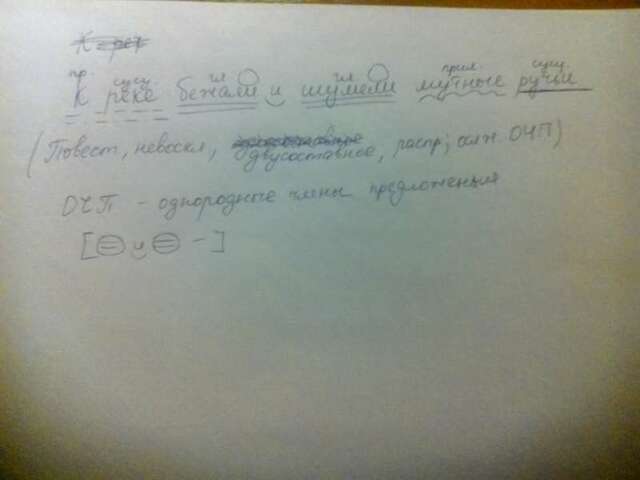 К рек
пр. сущ. гл гл прил сущ.
К реке бежали и шумели мутные ручьи
(Повест, невоскл, двусоставное, распр; осл. ОЧП)
ОЧП - однородные члены предложения
[ и - ]